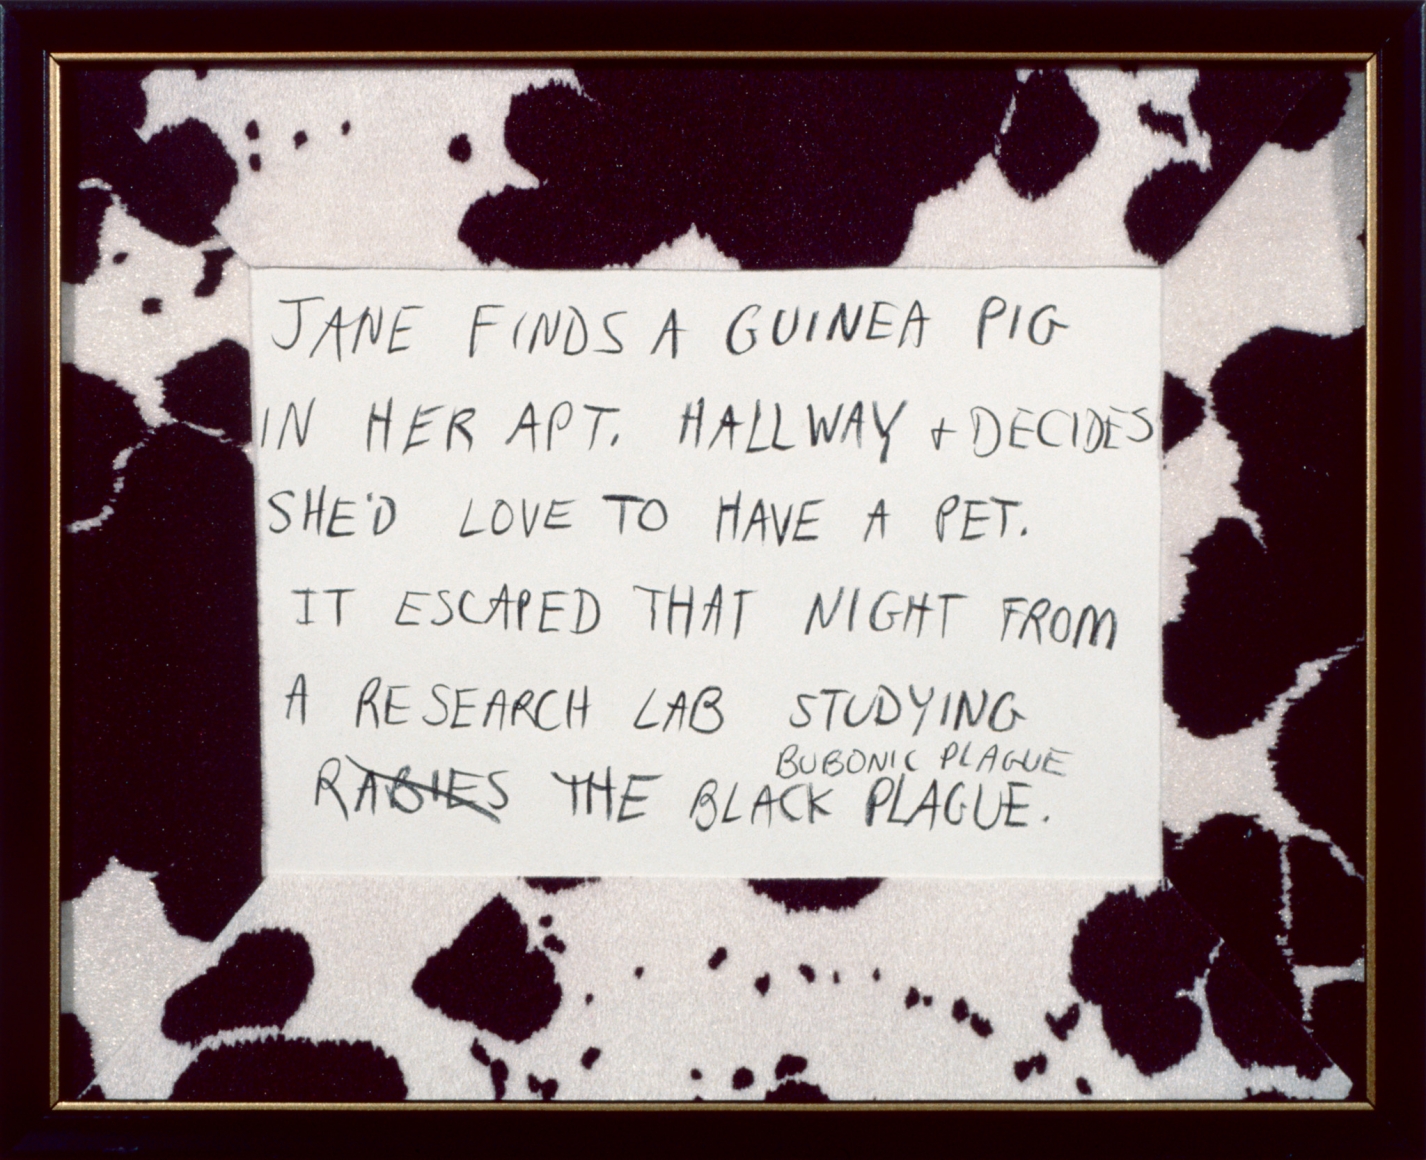 JANE FINDS A GUINEA PIG
IN HER APT. HALLWAY + DECIDES
SHE'D LOVE TO HAVE A PET.
IT ESCAPED THAT NIGHT FROM
A RESEARCH LAB STUDYING
BUBONIC PLAGUE
RABIES THE BLACK PLAGUE.